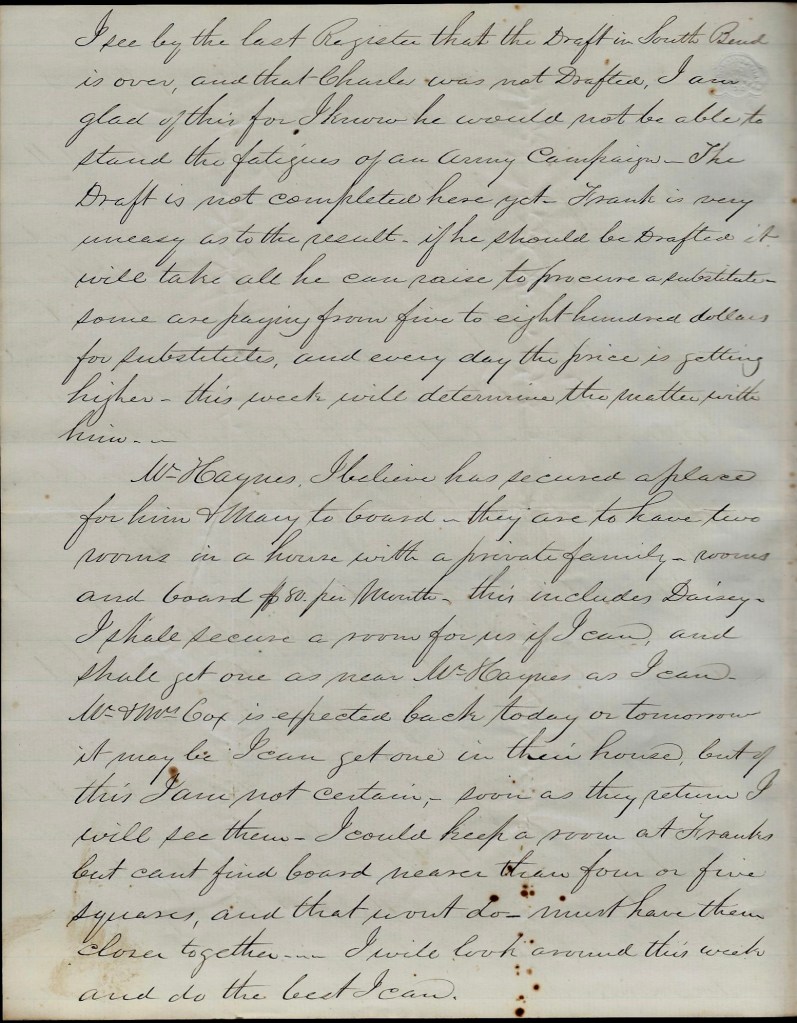 I see by the last Register that the Draft in South Bend
is over, and that Charles was not Drafted, I am
glad of this for I know he would not be able to
stand the fatigues of an Army Campaign - The
Draft is not completed here yet - Frank is very
uneasy as to the result - if he should be Drafted it
will take all he can raise to procure a substitute -
some are paying from five to eight hundred dollars
for substitutes, and every day the price is getting
higher - this week will determine the matter with
him - -
Mr Haynes, I believe has secured a place
for him & Mary to board - they are to have two
rooms in a house with a private family - rooms
and board $80. per Month - this includes Daisey -
I shall secure a room for us if I can, and
shall get one as near Mr Haynes as I can -
Mr & Mrs Cox is expected back today or tomorrow
it may be I can get one in their house, but of
this I am not certain, - soon as they return I
will see them - I could keep a room at Franks
but cant find board nearer than four or five
squares, and that wont do - must have them
closer together - - - I will look around this week
and do the best I can.